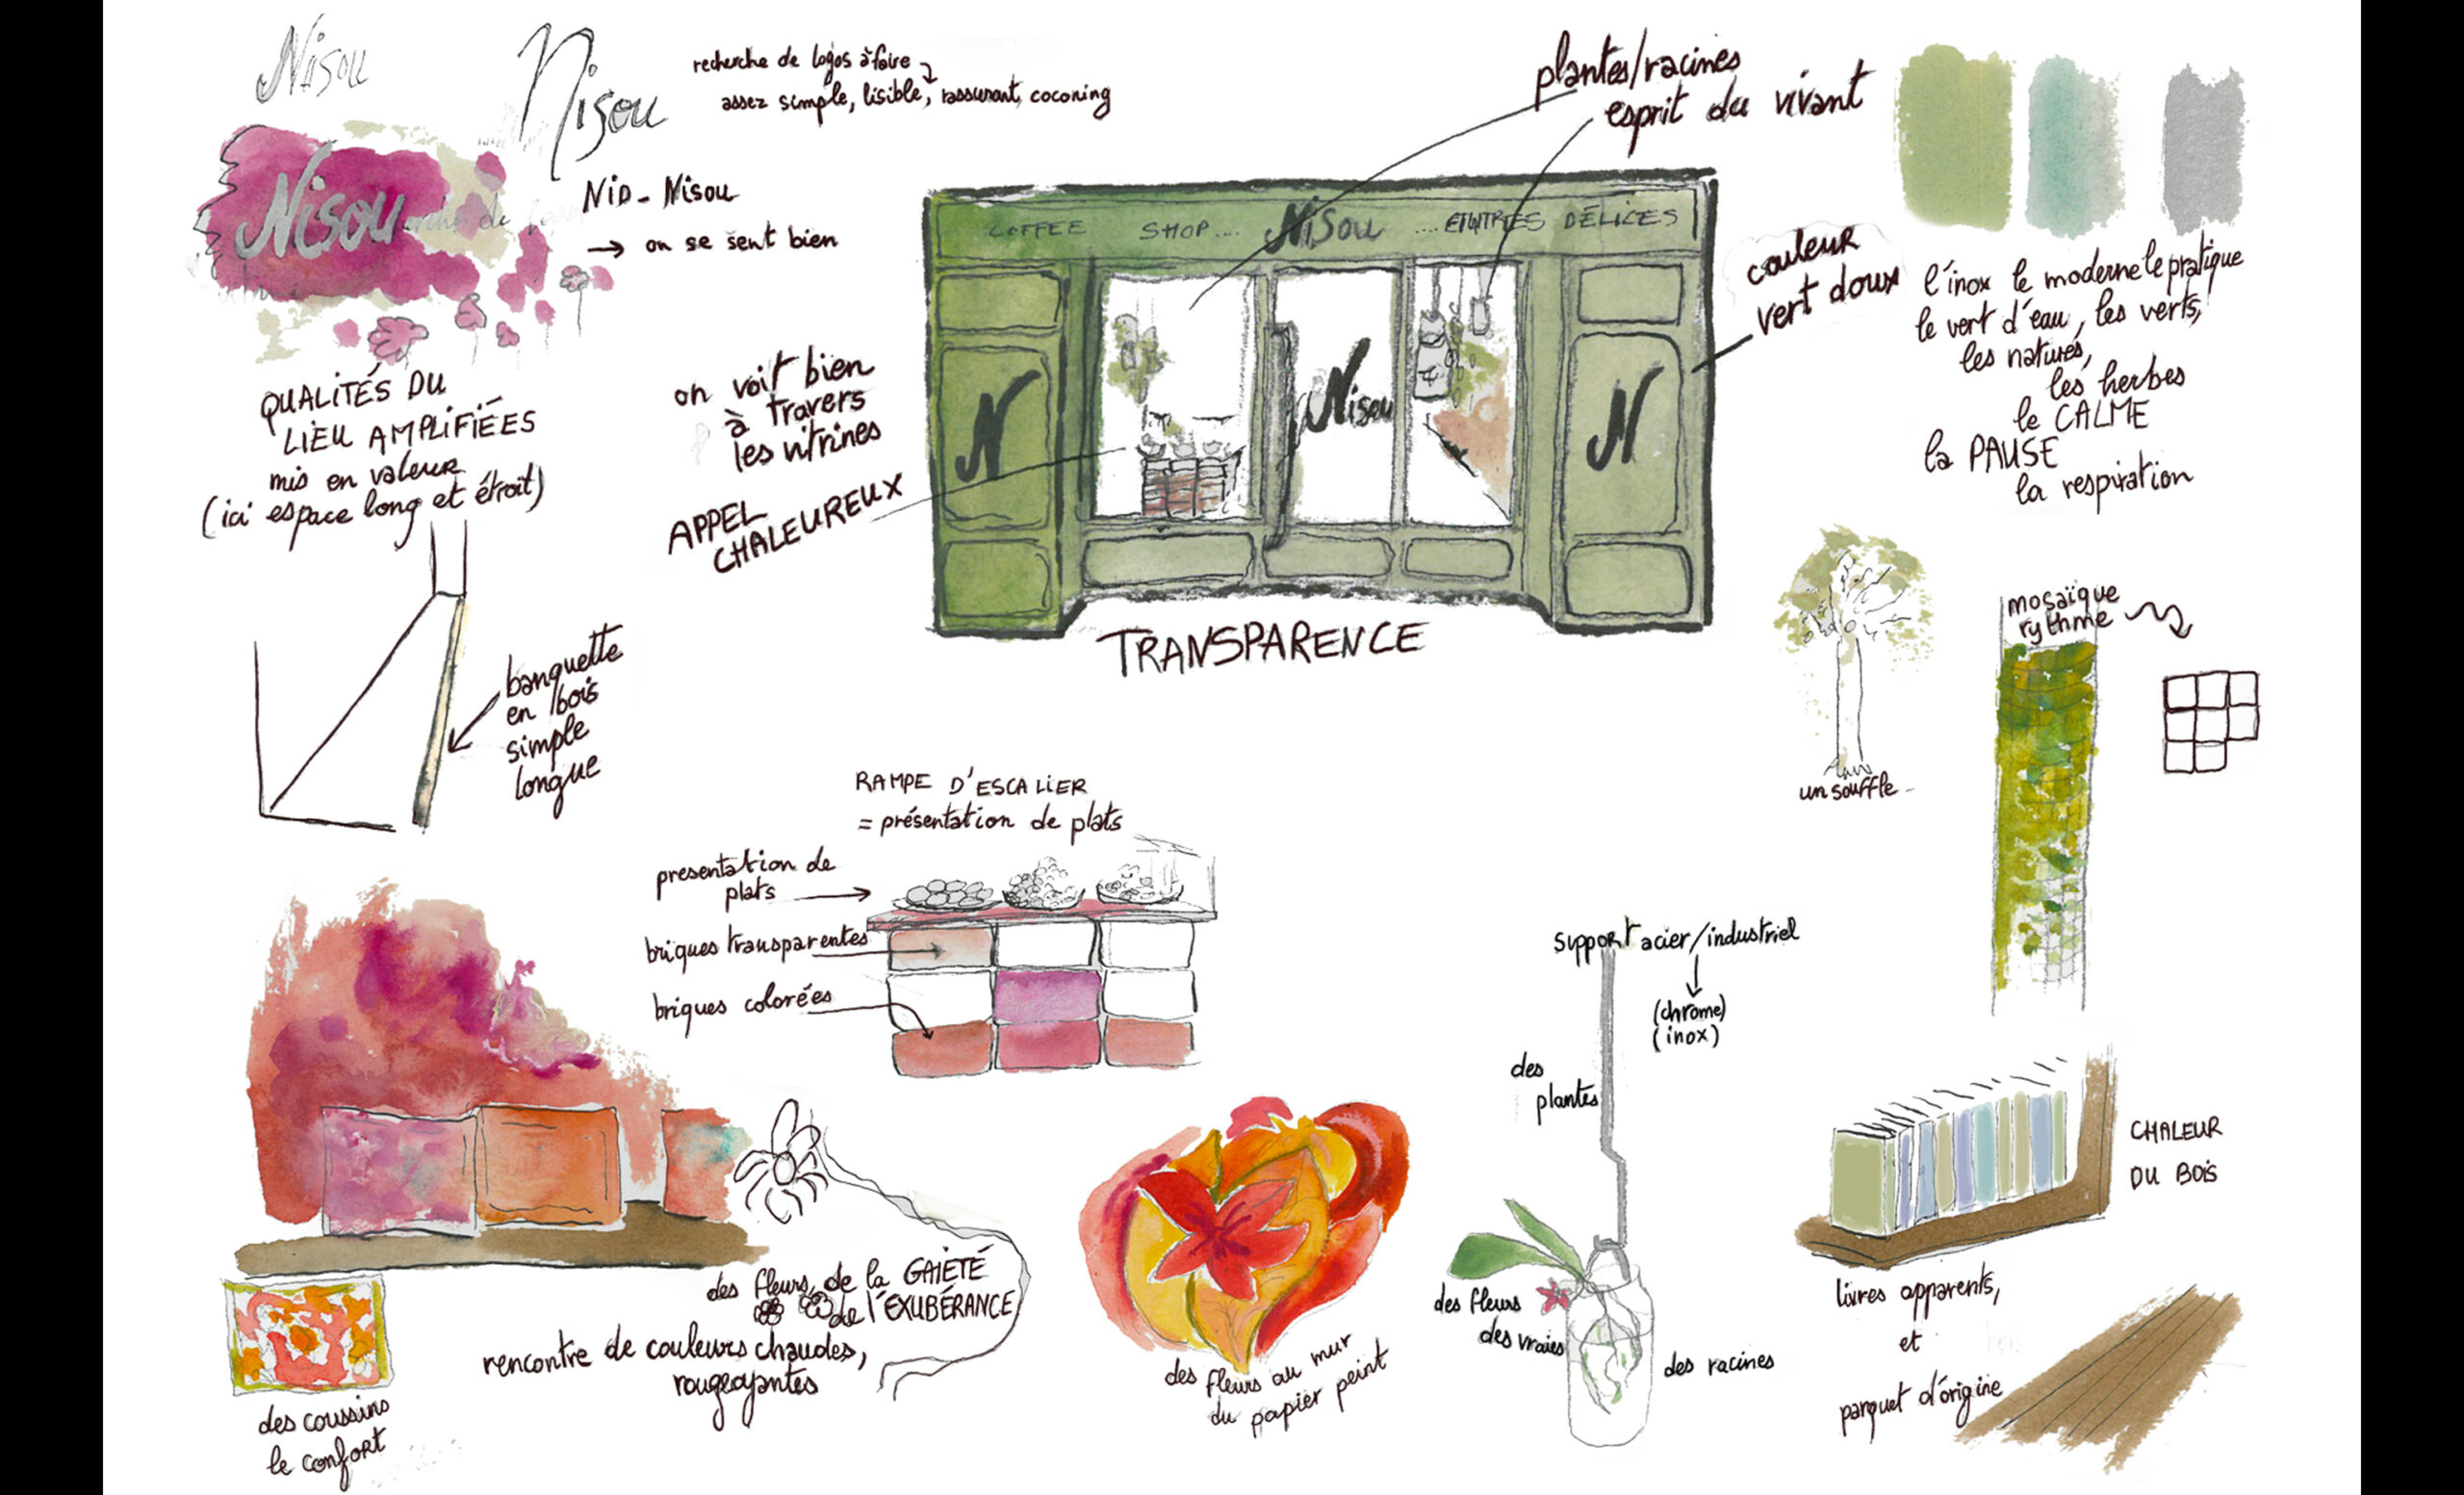 Nisou
Nisou
recherche de logos à faire
assez simple, lisible, rassurant, cocooning
Nisou
NiD - Nisou
→ on se sent bien
QUALITÉS DU
LIEU AMPLIFIÉES
mis en valeur
(ici espace long et étroit)
banquette
en bois
simple
longue
on voit bien
à travers
les vitrines
APPEL
CHALEUREUX
plantes/racines
esprit du vivant
COFFEE SHOP.... Nisou .... ET AUTRES DÉLICES
N
Nisou
N
TRANSPARENCE
couleur
vert doux
l'inox le moderne le pratique
le vert d'eau, les verts,
les natures,
les herbes
le CALME
la PAUSE
la respiration
un souffle
mosaïque
rythme
RAMPE D'ESCALiER
= présentation de plats
presentation de
plats
briques transparentes
briques colorées
support acier/industriel
(chrome)
(inox)
des
plantes
des fleurs
des vraies
des racines
CHALEUR
DU BOiS
livres apparents,
et
parquet d'origine
des fleurs, de la GAiETÉ
de l'EXUBÉRANCE
rencontre de couleurs chaudes,
rougeoyantes
des coussins
le confort
des fleurs au mur
du papier peint